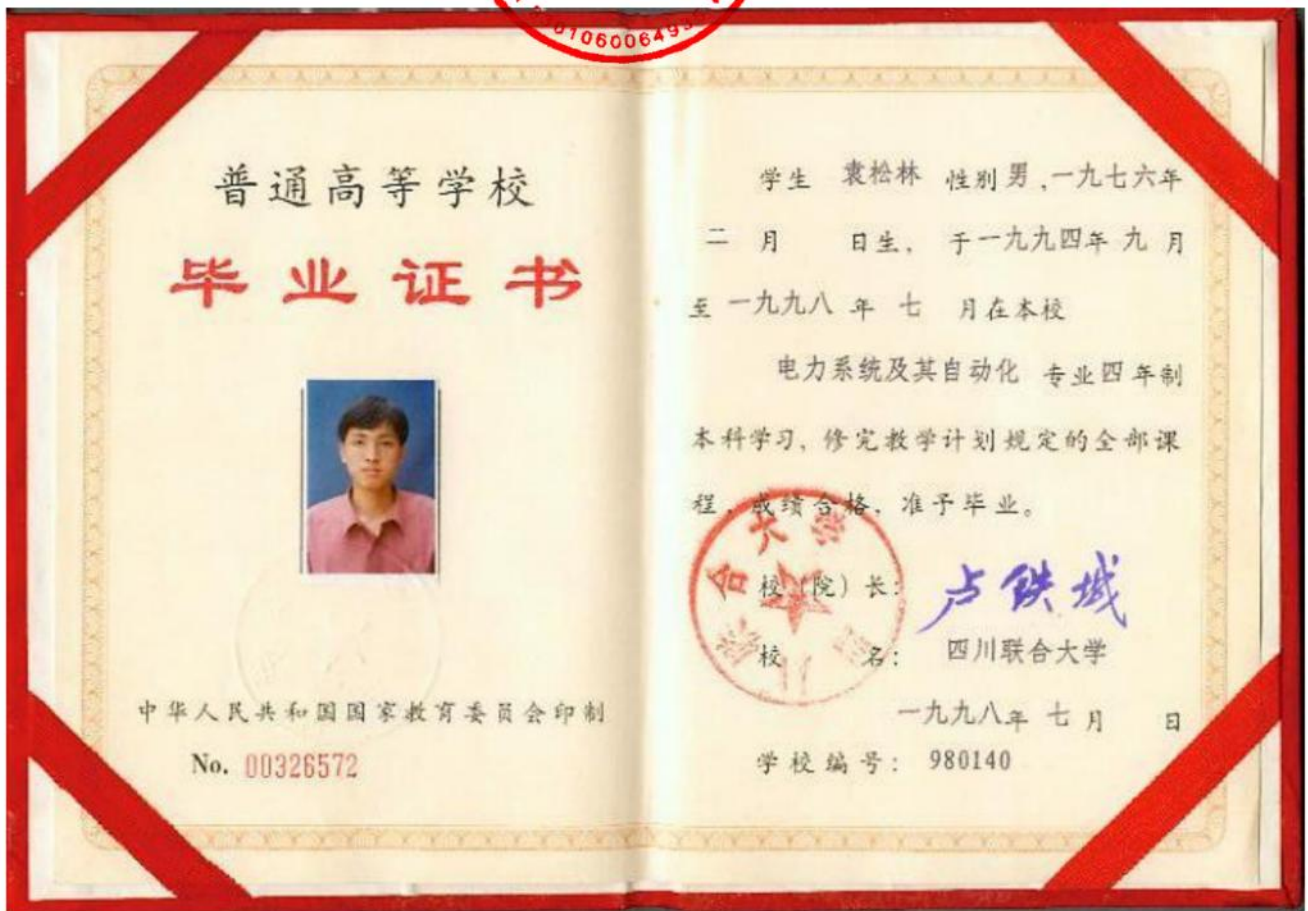 普通高等学校
毕业证书
中华人民共和国国家教育委员会印制
No. 00326572
学生 袁松林 性别男,一九七六年
二月 日生, 于一九九四年九月
至一九九八年七月在本校
电力系统及其自动化 专业四年制
本科学习, 修完教学计划规定的全部课
程, 成绩合格, 准予毕业。
校(院)长: 卢铁城
校 名: 四川联合大学
一九九八年七月 日
学校编号: 980140